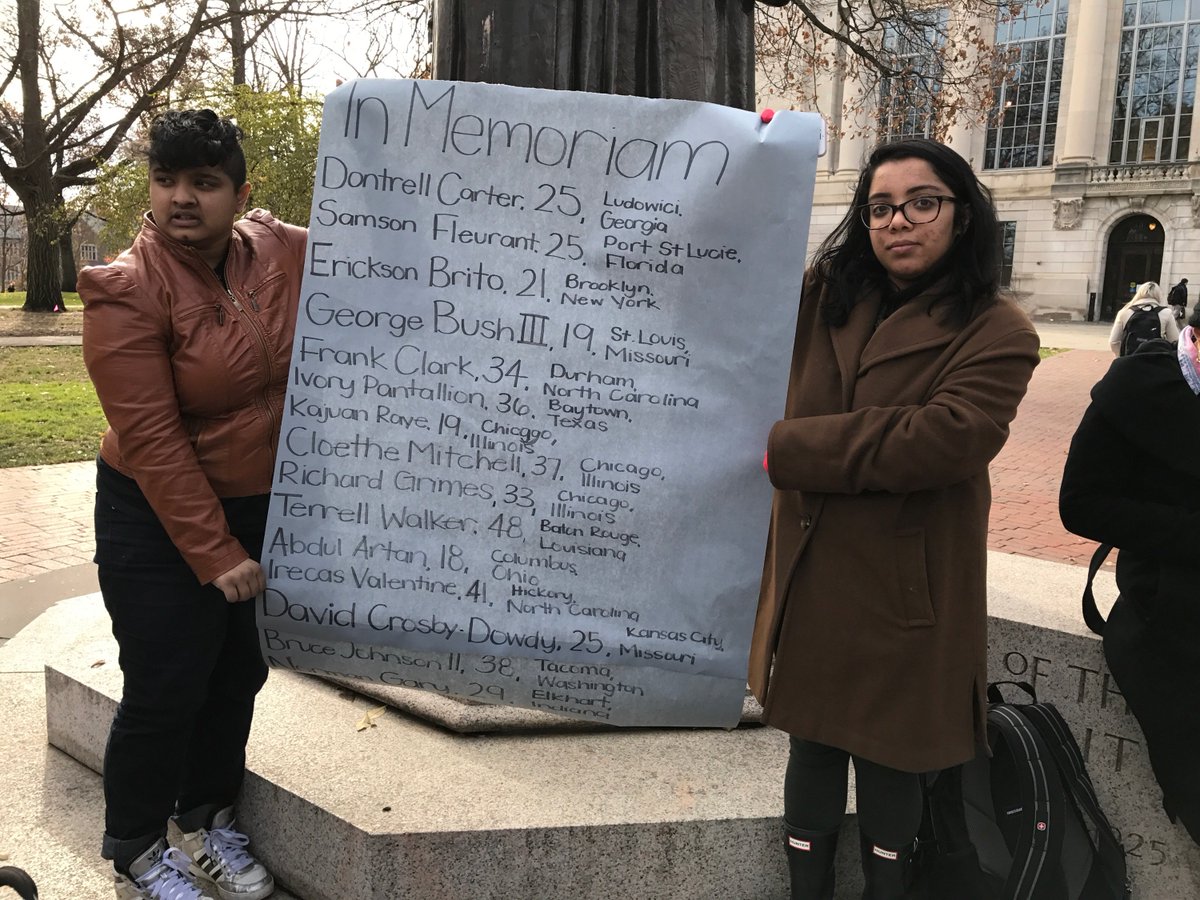 In Memoriam
Dontrell Carter. 25, Ludowici, Georgia
Samson Fleurant. 25, Port St Lucie, Florida
Erickson Brito. 21, Brooklyn, New York
George Bush III, 19, St. Louis, Missouri
Frank Clark, 34, Durham, North Carolina
Ivory Pantallion, 36, Baytown, Texas
Kajuan Raye, 19, Chicago, Illinois
Cloethe Mitchell, 37, Chicago, Illinois
Richard Grimes, 33, Chicago, Illinois
Terrell Walker. 48, Baton Rouge, Louisiana
Abdul Artan, 18, Columbus, Ohio
Irecas Valentine, 41, Hickory, North Carolina
David Crosby-Dowdy, 25, Kansas City, Missouri
Bruce Johnson II, 38, Tacoma, Washington
Gary. 29, Elkhart, Indiana
OF THE
HUNTER
HUNTER